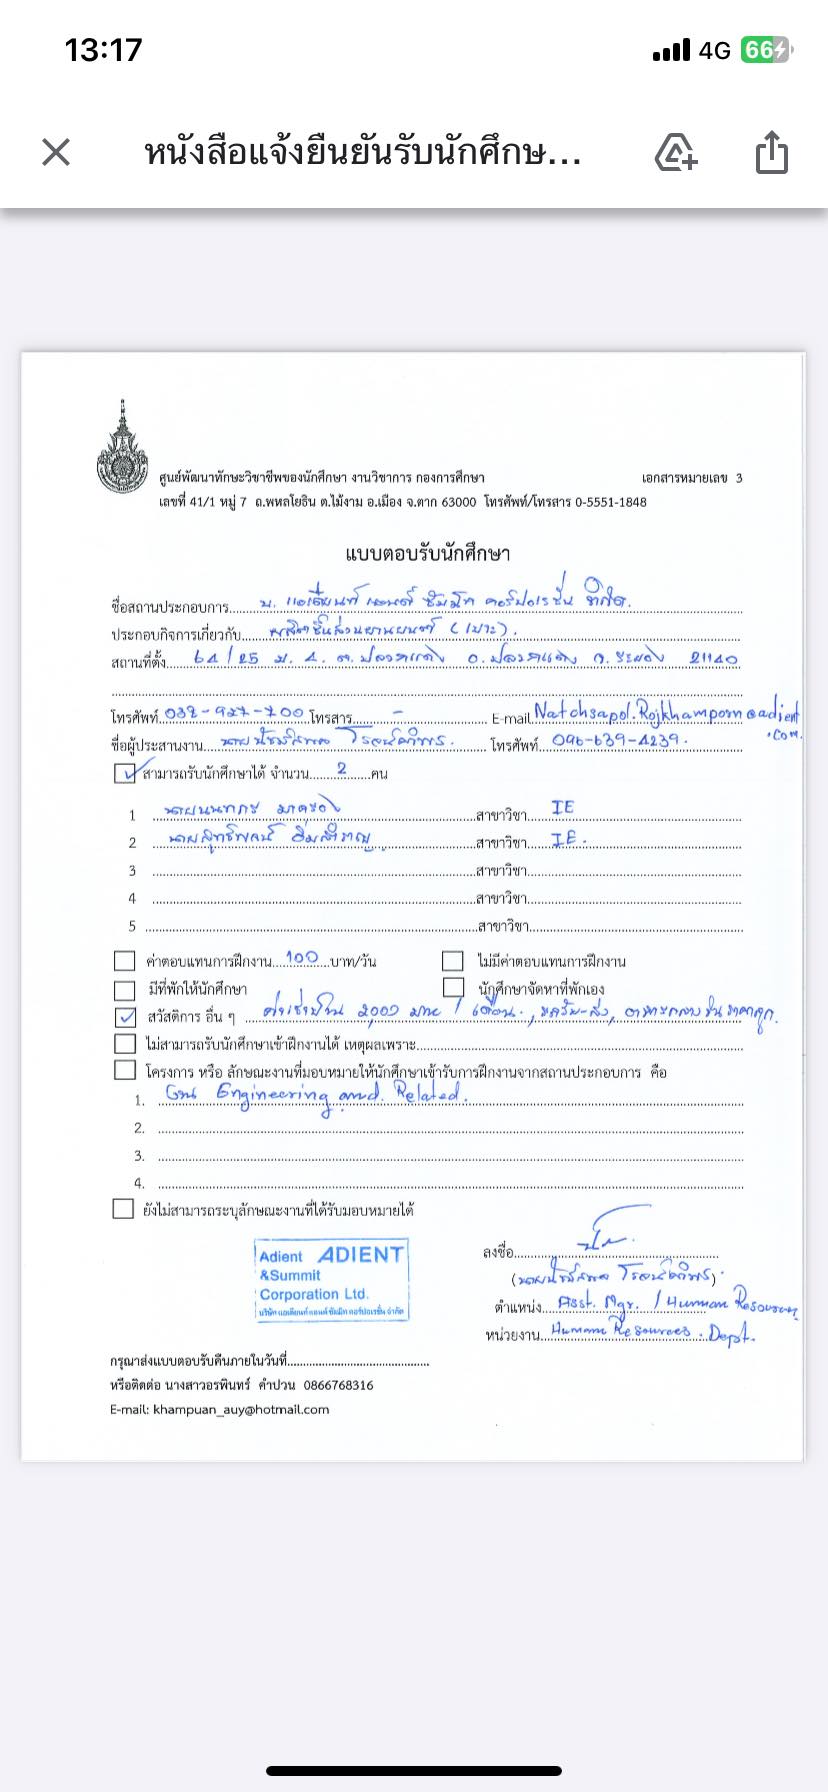 13:17
4G 66
หนังสือแจ้งยืนยันรับนักศึกษ...
ศูนย์พัฒนาทักษะวิชาชีพของนักศึกษา งานวิชาการ กองการศึกษา
เอกสารหมายเลข 3
เลขที่ 41/1 หมู่ 7 ถ.พหลโยธิน ต.ไม้งาม อ.เมือง จ.ตาก 63000 โทรศัพท์/โทรสาร 0-5551-1848
แบบตอบรับนักศึกษา
ชื่อสถานประกอบการ บ. แอเดียนท์ แอนด์ ซัมมิท คอร์ปอเรชั่น จำกัด.
ประกอบกิจการเกี่ยวกับ ผลิตชิ้นส่วนยานยนต์ (เบาะ).
สถานที่ตั้ง 64/25 ม. 4. ต. ปลวกแดง อ. ปลวกแดง จ. ระยอง 21140
โทรศัพท์ 038-927-700 โทรสาร - E-mail Natchsapol.Rojkhamporn@adient.com.
ชื่อผู้ประสานงาน โทรศัพท์ 096-639-4239.
สามารถรับนักศึกษาได้ จำนวน 2 คน
1 สาขาวิชา IE
2 สาขาวิชา IE.
3 สาขาวิชา
4 สาขาวิชา
5 สาขาวิชา
ค่าตอบแทนการฝึกงาน 100 บาท/วัน ไม่มีค่าตอบแทนการฝึกงาน
มีที่พักให้นักศึกษา นักศึกษาจัดหาที่พักเอง
สวัสดิการ อื่น ๆ ค่าเช่าบ้าน 2,000 บาท / เดือน., รถรับ-ส่ง, อาหารกลางวันราคาถูก.
ไม่สามารถรับนักศึกษาเข้าฝึกงานได้ เหตุผลเพราะ
โครงการ หรือ ลักษณะงานที่มอบหมายให้นักศึกษาเข้ารับการฝึกงานจากสถานประกอบการ คือ
1. งาน Engineering and. Related.
2.
3.
4.
ยังไม่สามารถระบุลักษณะงานที่ได้รับมอบหมายได้
Adient ADIENT
&Summit
Corporation Ltd.
บริษัท แอเดียนท์ แอนด์ ซัมมิท คอร์ปอเรชั่น จำกัด
ลงชื่อ
ตำแหน่ง Asst. Mgr. / Human Resources
หน่วยงาน Human Resources. Dept.
กรุณาส่งแบบตอบรับคืนภายในวันที่
หรือติดต่อ นางสาวอรพินทร์ คำปวน 0866768316
E-mail: khampuan_auy@hotmail.com